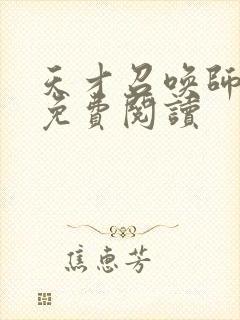 天才召喚師
免費閱讀
焦惠芳